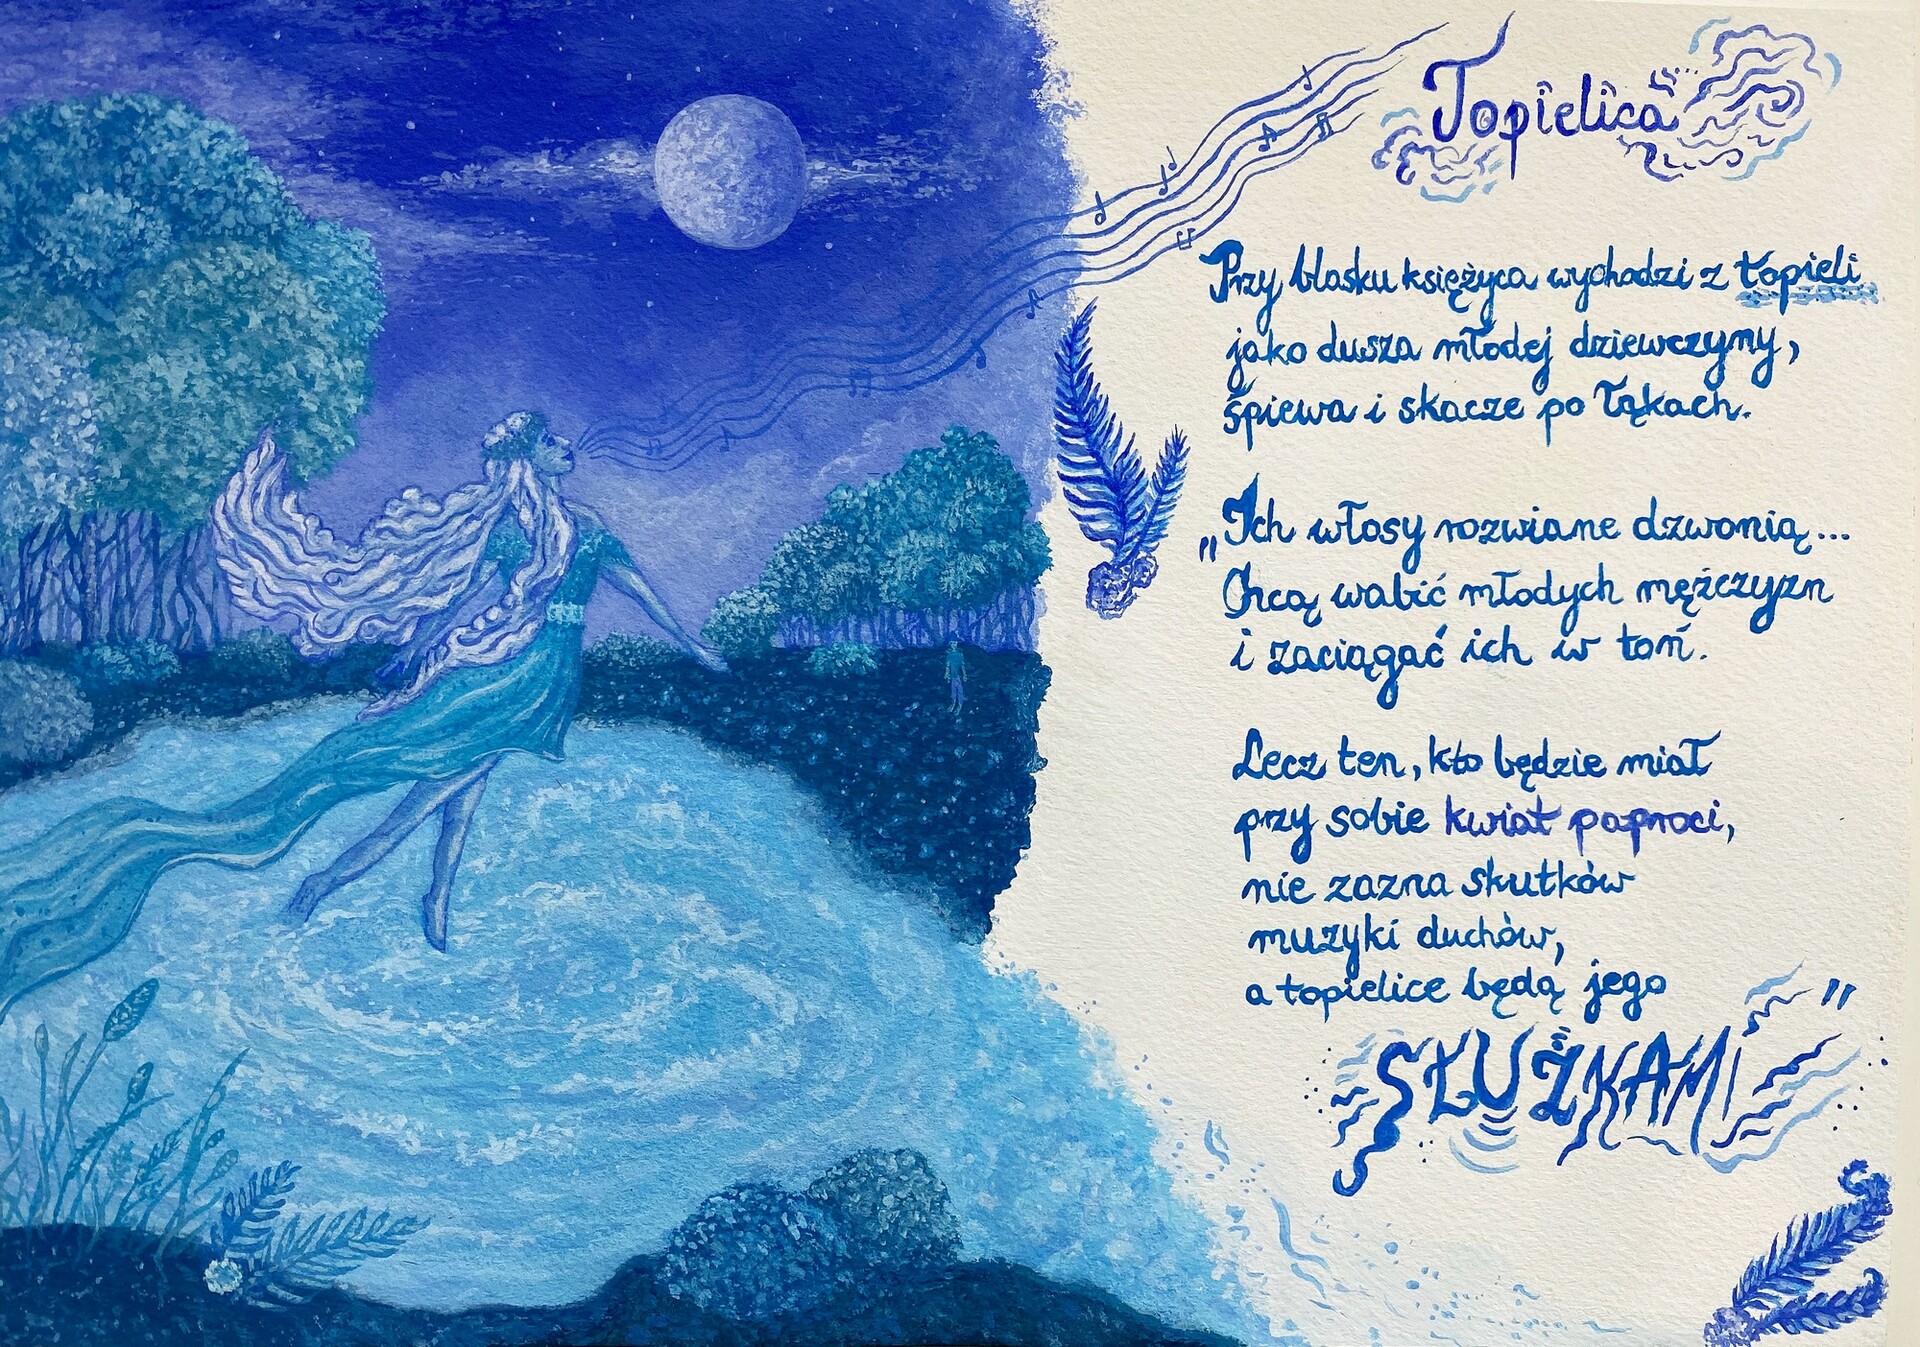 Topielica
Przy blasku księżyca wychodzi z topieli
jako dusza młodej dziewczyny,
śpiewa i skacze po łąkach.
„Ich włosy rozwiane dzwonią...
Chcą wabić młodych mężczyzn
i zaciągać ich w toń.
Lecz ten, kto będzie miał
przy sobie kwiat paproci,
nie zazna skutków
muzyki duchów,
a topielice będą jego
SŁUŻKAMI"